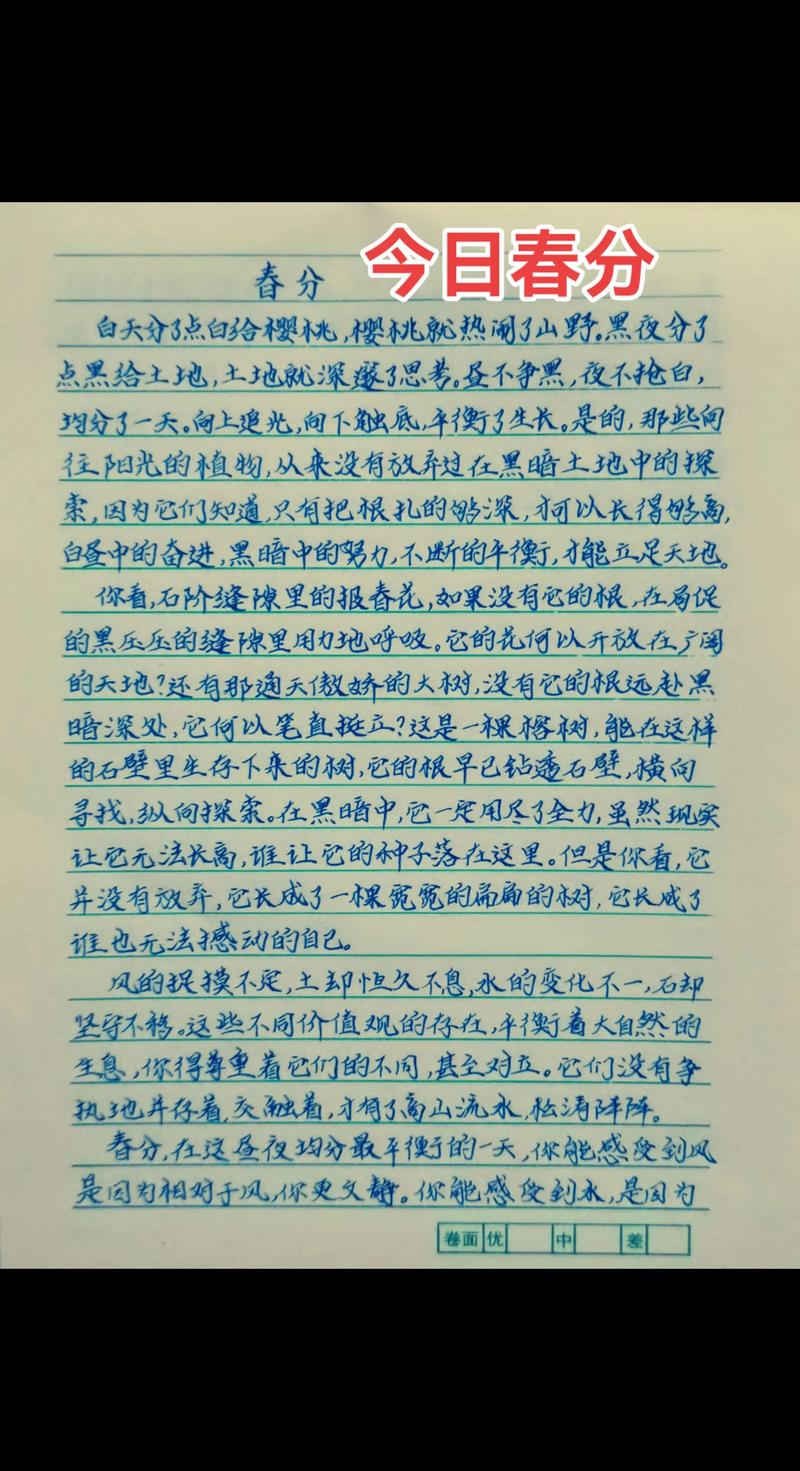 今日春分
春分
白天分了点白给樱桃,樱桃就热闹了山野。黑夜分了
点黑给土地,土地就深邃了思考。昼不争黑,夜不抢白,
均分了一天。向上追光,向下触底,平衡了生长。是的,那些向
往阳光的植物,从来没有放弃过在黑暗土地中的探
索,因为它们知道,只有把根扎的够深,才可以长得够高,
白昼中的奋进,黑暗中的努力,不断的平衡,才能立足天地。
你看,石阶缝隙里的报春花,如果没有它的根,在局促
的黑压压的缝隙里用力地呼吸。它的花何以开放在广阔
的天地?还有那通天傲娇的大树,没有它的根远赴黑
暗深处,它何以笔直挺立?这是一棵榕树,能在这样
的石壁里生存下来的树,它的根早已钻透石壁,横向
寻找,纵向探索。在黑暗中,它一定用尽了全力,虽然现实
让它无法长高,谁让它的种子落在这里。但是你看,它
并没有放弃,它长成了一棵宽宽的扁扁的树,它长成了
谁也无法撼动的自己。
风的捉摸不定,土却恒久不息,水的变化不一,石却
坚守不移。这些不同价值观的存在,平衡着大自然的
生息,你得尊重着它们的不同,甚至对立。它们没有争
执地并存着,交融着,才有了高山流水,松涛阵阵。
春分,在这昼夜均分最平衡的一天,你能感受到风
是因为相对于风,你更文静。你能感受到水,是因为
卷面 优 中 差